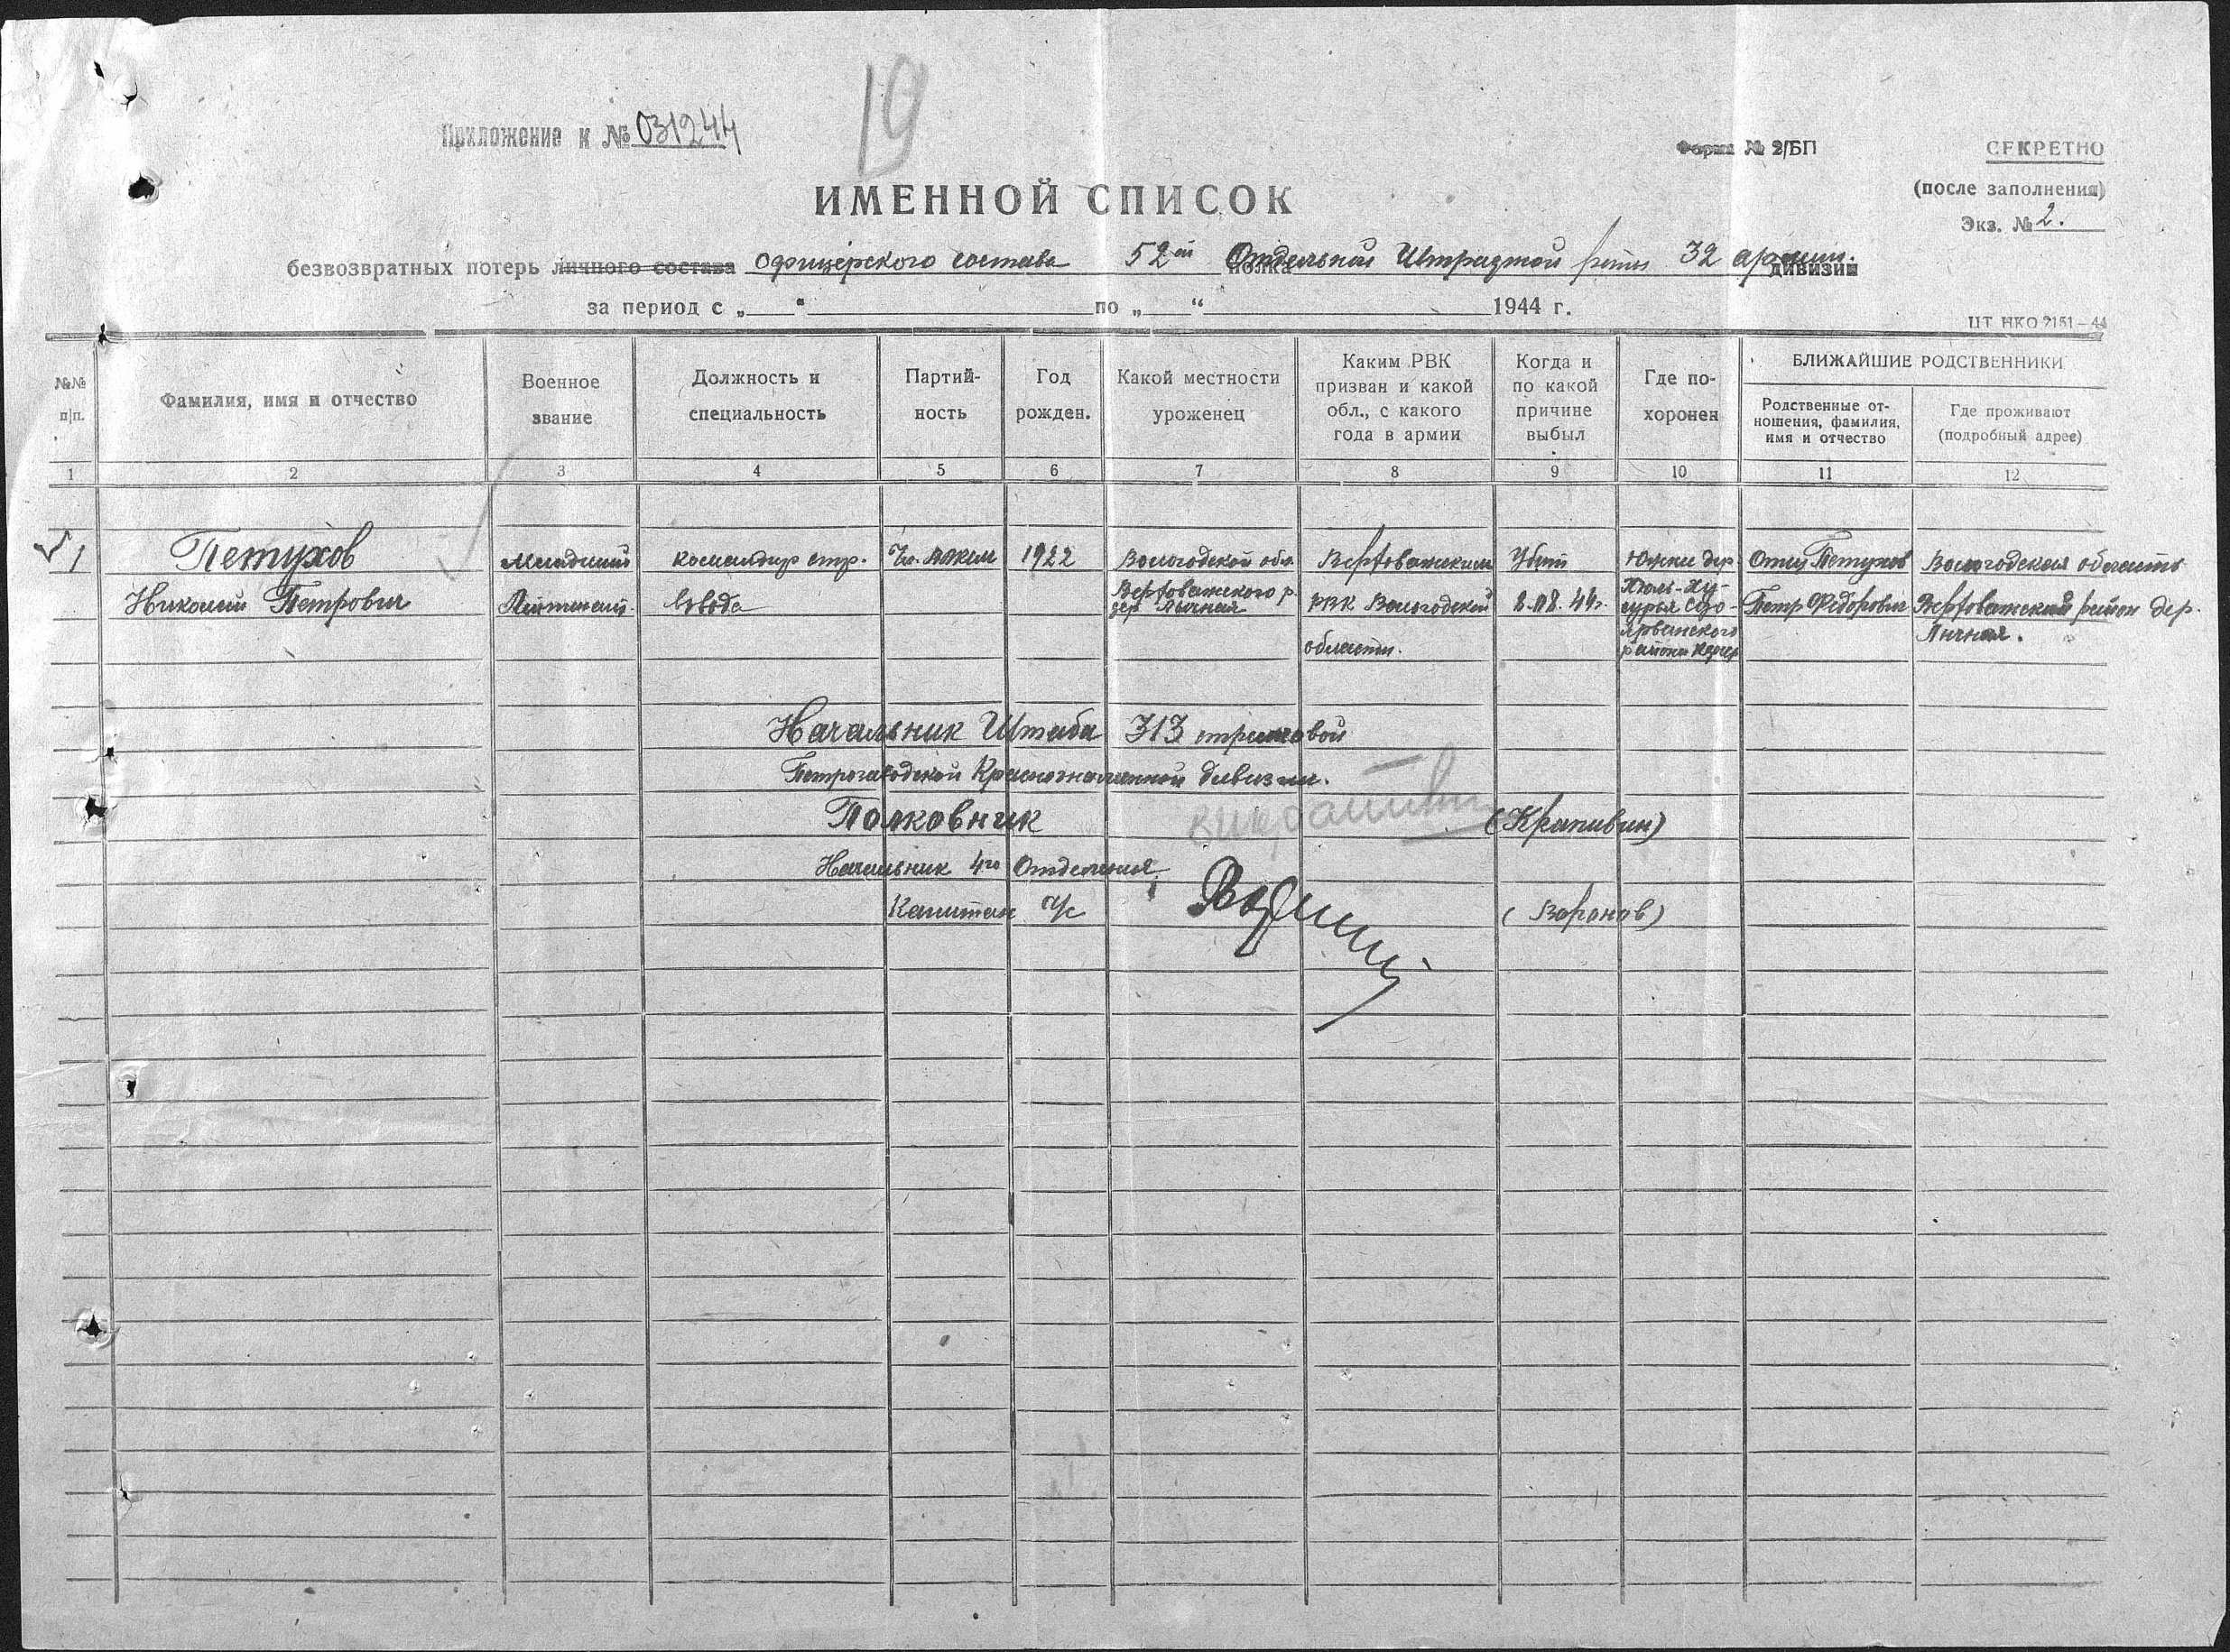 19
Приложение к № 031244
Форма № 2/БП
СЕКРЕТНО
(после заполнения)
Экз. № 2.
ИМЕННОЙ СПИСОК
безвозвратных потерь личного состава офицерского состава 52ой Отдельной Штрафной роты полка 32 армии. дивизии
за период с „ “ по „ “ 1944 г.
ЦТ НКО 2151—44
№№ п|п.
Фамилия, имя и отчество
Военное звание
Должность и специальность
Партий-
ность
Год рожден.
Какой местности уроженец
Каким РВК
призван и какой
обл., с какого
года в армии
Когда и
по какой
причине
выбыл
Где по-
хоронен
БЛИЖАЙШИЕ РОДСТВЕННИКИ
Родственные от-
ношения, фамилия,
имя и отчество
Где проживают
(подробный адрес)
1 2 3 4 5 6 7 8 9 10 11 12
1
Петухов
Николай Петрович
Младший
Лейтенант
командир стр.
взвода
Чл. ВЛКСМ
1922
Вологодской обл.
Верховажского р.
дер.
Верховажским
РВК Вологодской
области.
Убит
8.08.44г.
Южнее дер.
района
Отец Петухов
Петр Федорович
Вологодская область
Верховажский район дер.
Начальник Штаба 313 стрелковой
Петрозаводской Краснознаменной дивизии.
Полковник (Крапивин)
Начальник 4го Отделения
Капитан а/с (Воронов)